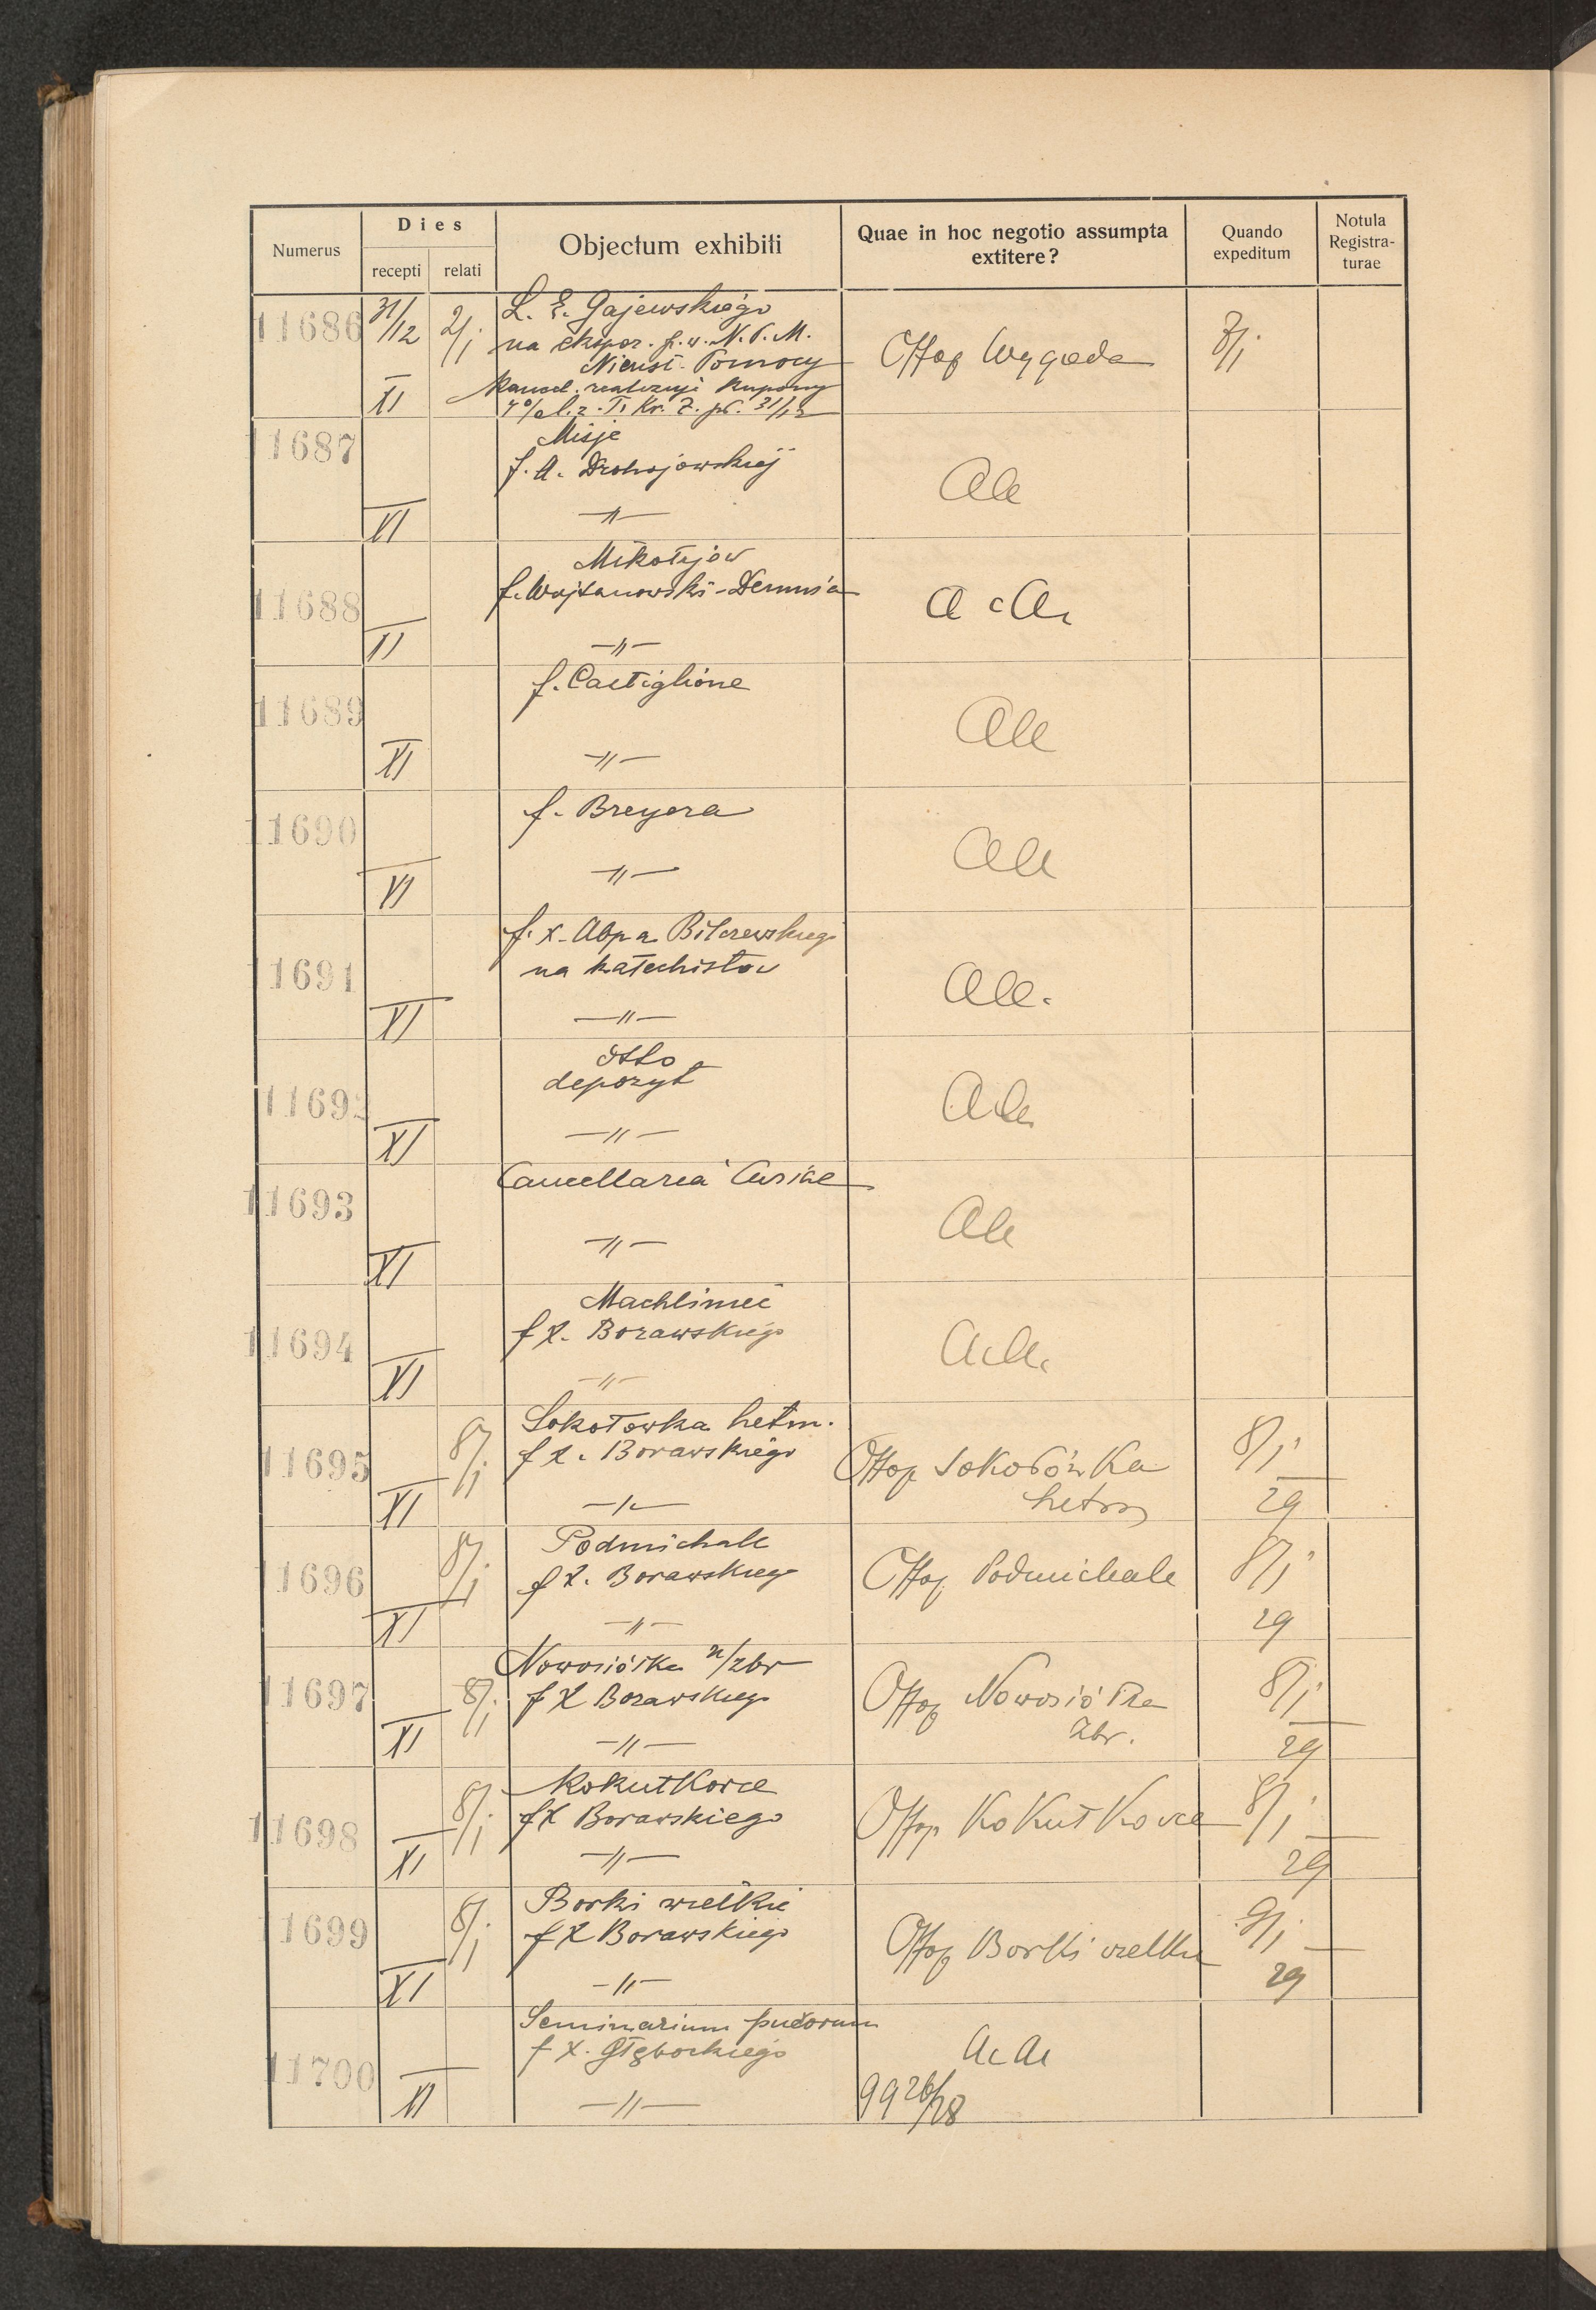 Numerus
Dies
recepti relati
Objectum exhibiti
Quae in hoc negotio assumpta
extitere?
Quando
expeditum
Notula
Registra-
turae
11686 31/12 2/1
Ł. E. Gajewskiego
na ekspoz. p. w. N. P. M.
Nieust. Pomocy
Kancel. realizuje kupony
31/12
XI
Offop Wygoda
7/1
11687
Misje
f. A. Drohojowskiej
XI
—〃—
11688
Mikołajów
f. Wojtanowski-Demnia
XI
—〃—
a a
11689
f. Castiglione
XI
—〃—
11690
f. Breyera
XI
—〃—
11691
f. X. Abpa Bilczewskiego
na katechistów
XI
—〃—
11692
Otto
depozyt
XI
—〃—
11693
Cancellaria Curiae
XI
—〃—
11694
Machliniec
f X. Borawskiego
XI
—〃—
11695 8/1
Sokołowka hetm.
f X. Borawskiego
XI
—〃—
Offop Sokołówka
hetm
8/1
29
11696 8/1
Podmichale
f X. Borawskiego
XI
—〃—
Offop Podmichale
8/1
29
11697 8/1
Nowosiółka n/zbr
f X Borawskiego
XI
—〃—
Offop Nowosiółka
Zbr.
8/1
29
11698 8/1
Kokutkowce
f X Borawskiego
XI
—〃—
Offop Kokutkowce
8/1
29
11699 8/1
Borki wielkie
f X Borawskiego
XI
—〃—
Offop Borki wielkie
9/1
29
11700
Seminarium puerorum
f X. Głębockiego
XI
—〃—
a a
9926/28